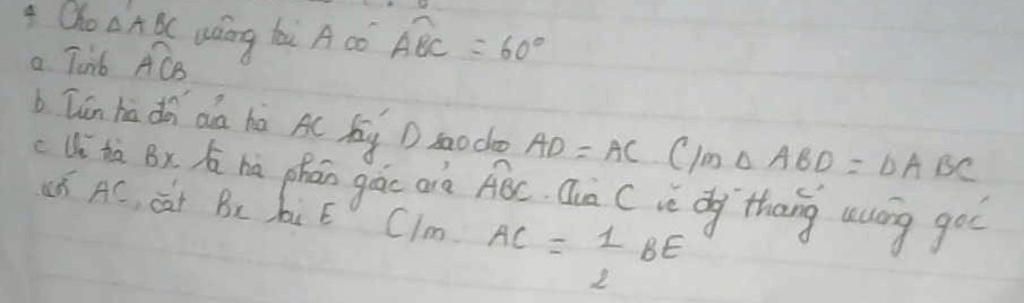 4 Cho Δ ABC vuông tại A có ABC = 60°
a Tính ACB
b. Trên tia đối của tia AC lấy D sao cho AD = AC C/m Δ ABD = Δ ABC
c Vẽ tia Bx là tia phân giác của ABC. Qua C vẽ đg thẳng vuông góc
với AC, cắt Bx tại E C/m. AC = 1/2 BE